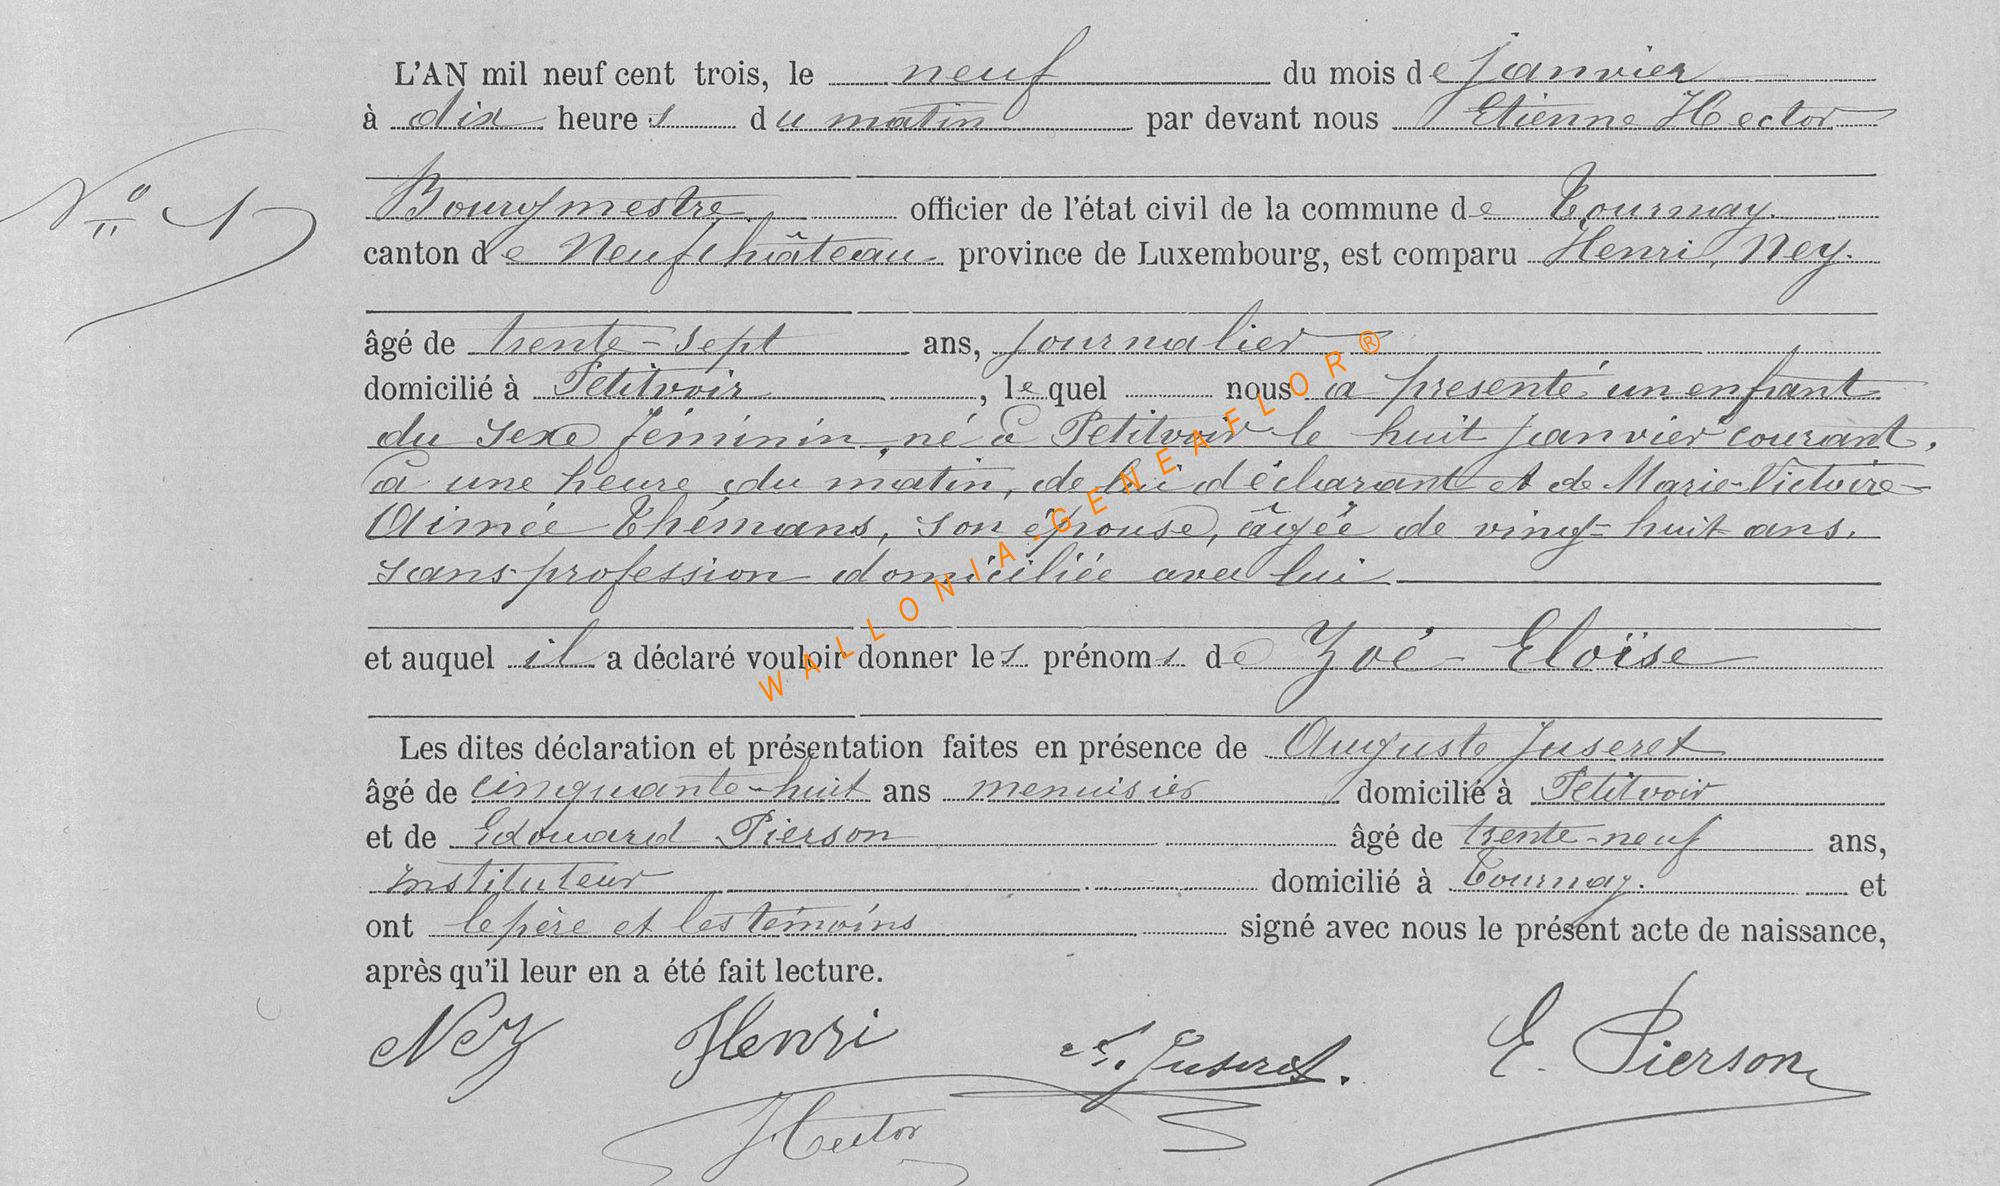 L'AN mil neuf cent trois, le neuf du mois de Janvier
à dix heures du matin par devant nous Etienne Hector
N° 1
Bourgmestre officier de l'état civil de la commune de Tournay.
canton de Neufchâteau province de Luxembourg, est comparu Henri Ney.
âgé de trente-sept ans, journalier
domicilié à Petitvoir, lequel nous a présenté un enfant
du sexe féminin, né à Petitvoir le huit Janvier courant,
à une heure du matin, de lui déclarant et de Marie-Victoire-
Aimée Thémans, son épouse, âgée de vingt-huit ans,
sans profession domiciliée avec lui
et auquel il a déclaré vouloir donner les prénoms de Zoé-Eloïse
Les dites déclaration et présentation faites en présence de Auguste Juseret
âgé de cinquante-huit ans menuisier domicilié à Petitvoir
et de Edouard Pierson âgé de trente-neuf ans,
Instituteur domicilié à Tournay. et
ont le père et les témoins signé avec nous le présent acte de naissance,
après qu'il leur en a été fait lecture.
Ney Henri Juseret. E. Pierson
Hector
WALLONIA-GENEAFLOR®